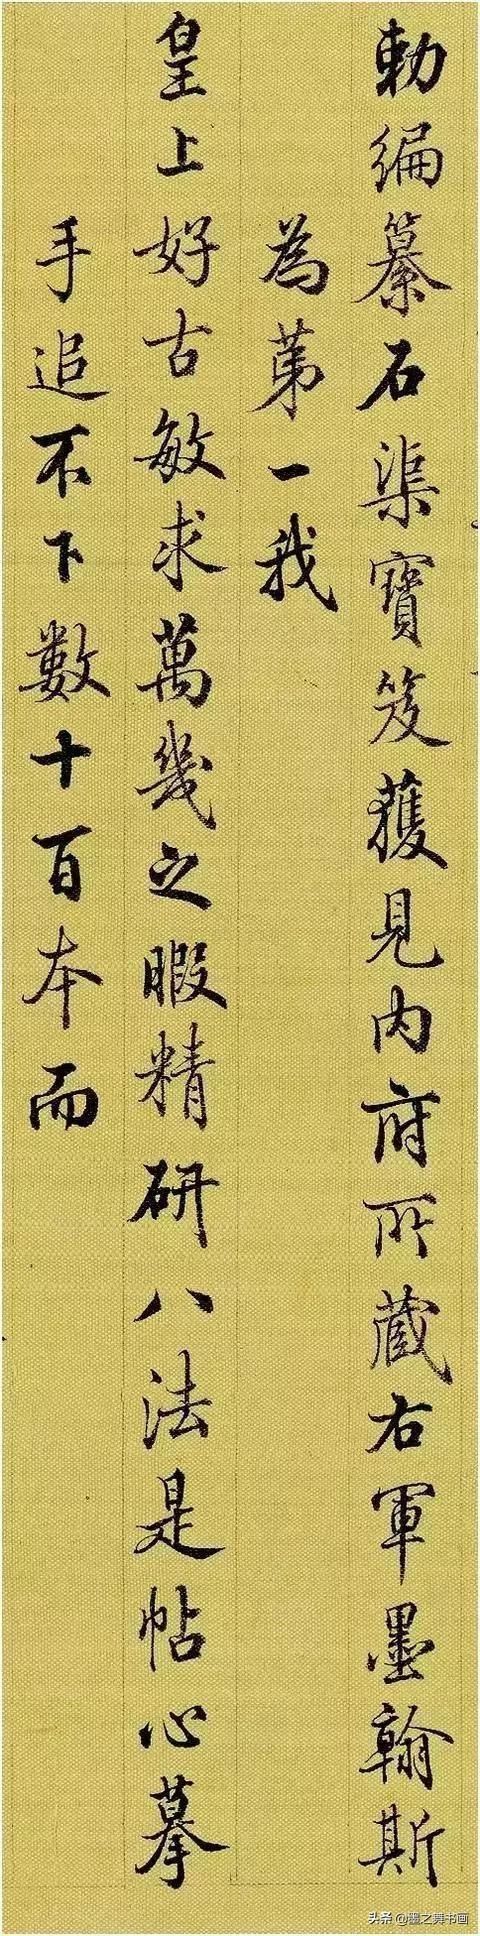 勅編纂石渠寶笈獲見内府所蔵右軍墨翰斯
為苐一我
皇上好古敏求萬幾之暇精研八法是帖心摹
手追不下數十百本而
头条 @墨之舞书画